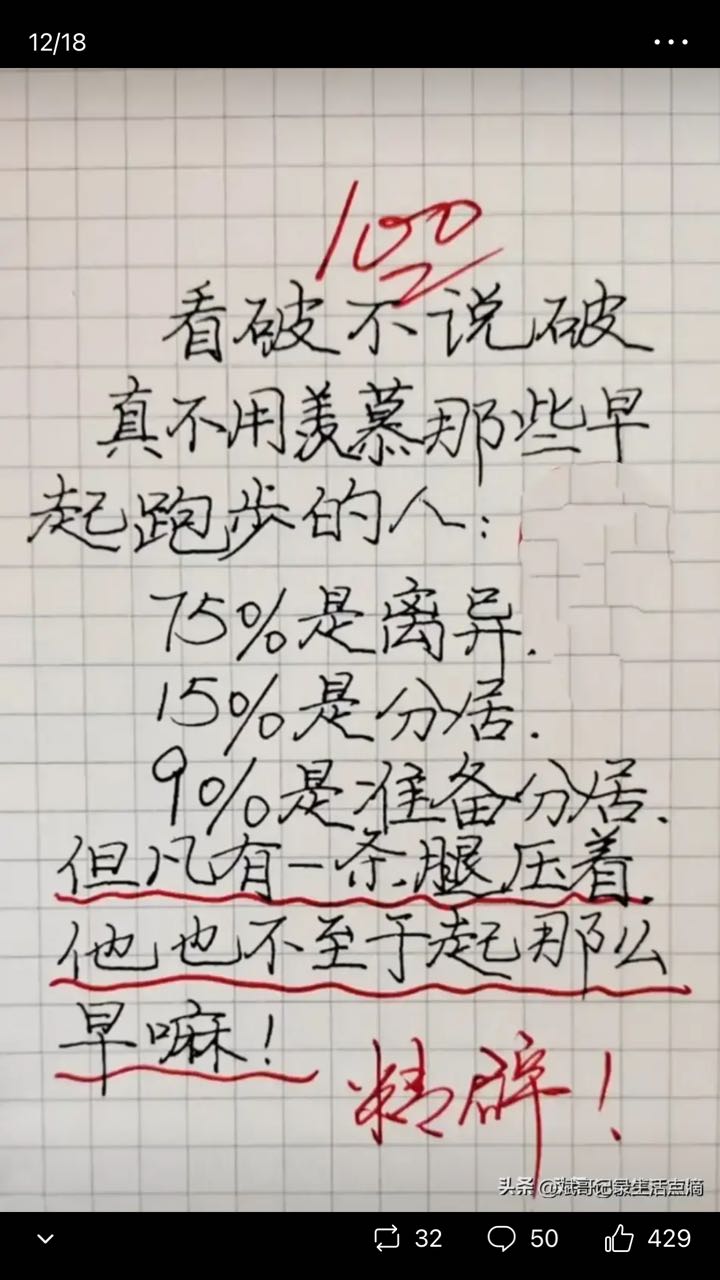 12/18
100
看破不说破
真不用羡慕那些早
起跑步的人:
75%是离异.
15%是分居.
9%是准备分居.
但凡有一条腿压着.
他也不至于起那么
早嘛!
精辟!
头条 @斌哥记录生活点滴
32 50 429